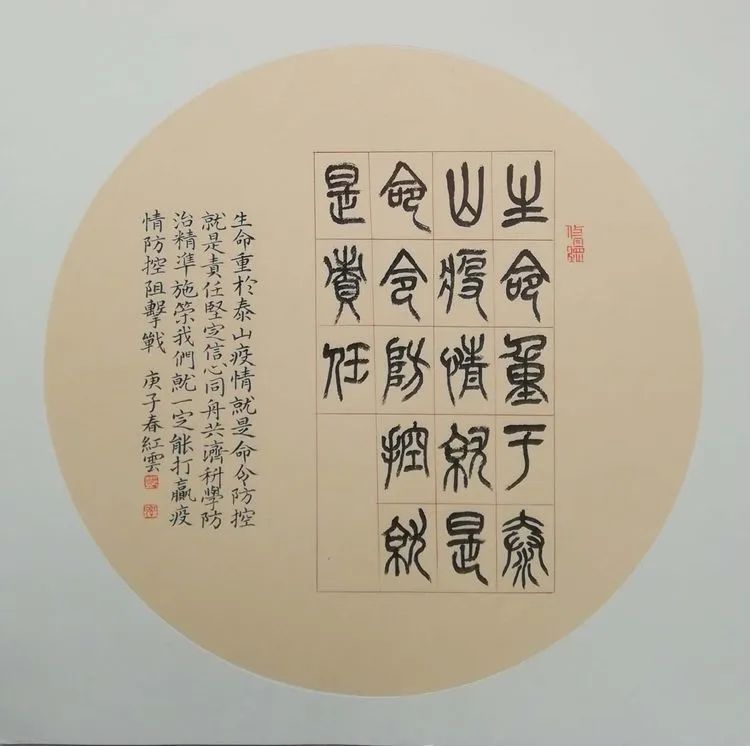 生命重于泰
山疫情就是
命令防控就
是責任
生命重於泰山疫情就是命令防控
就是責任堅定信心同舟共濟科學防
治精準施策我們就一定能打贏疫
情防控阻擊戰 庚子春紅雲